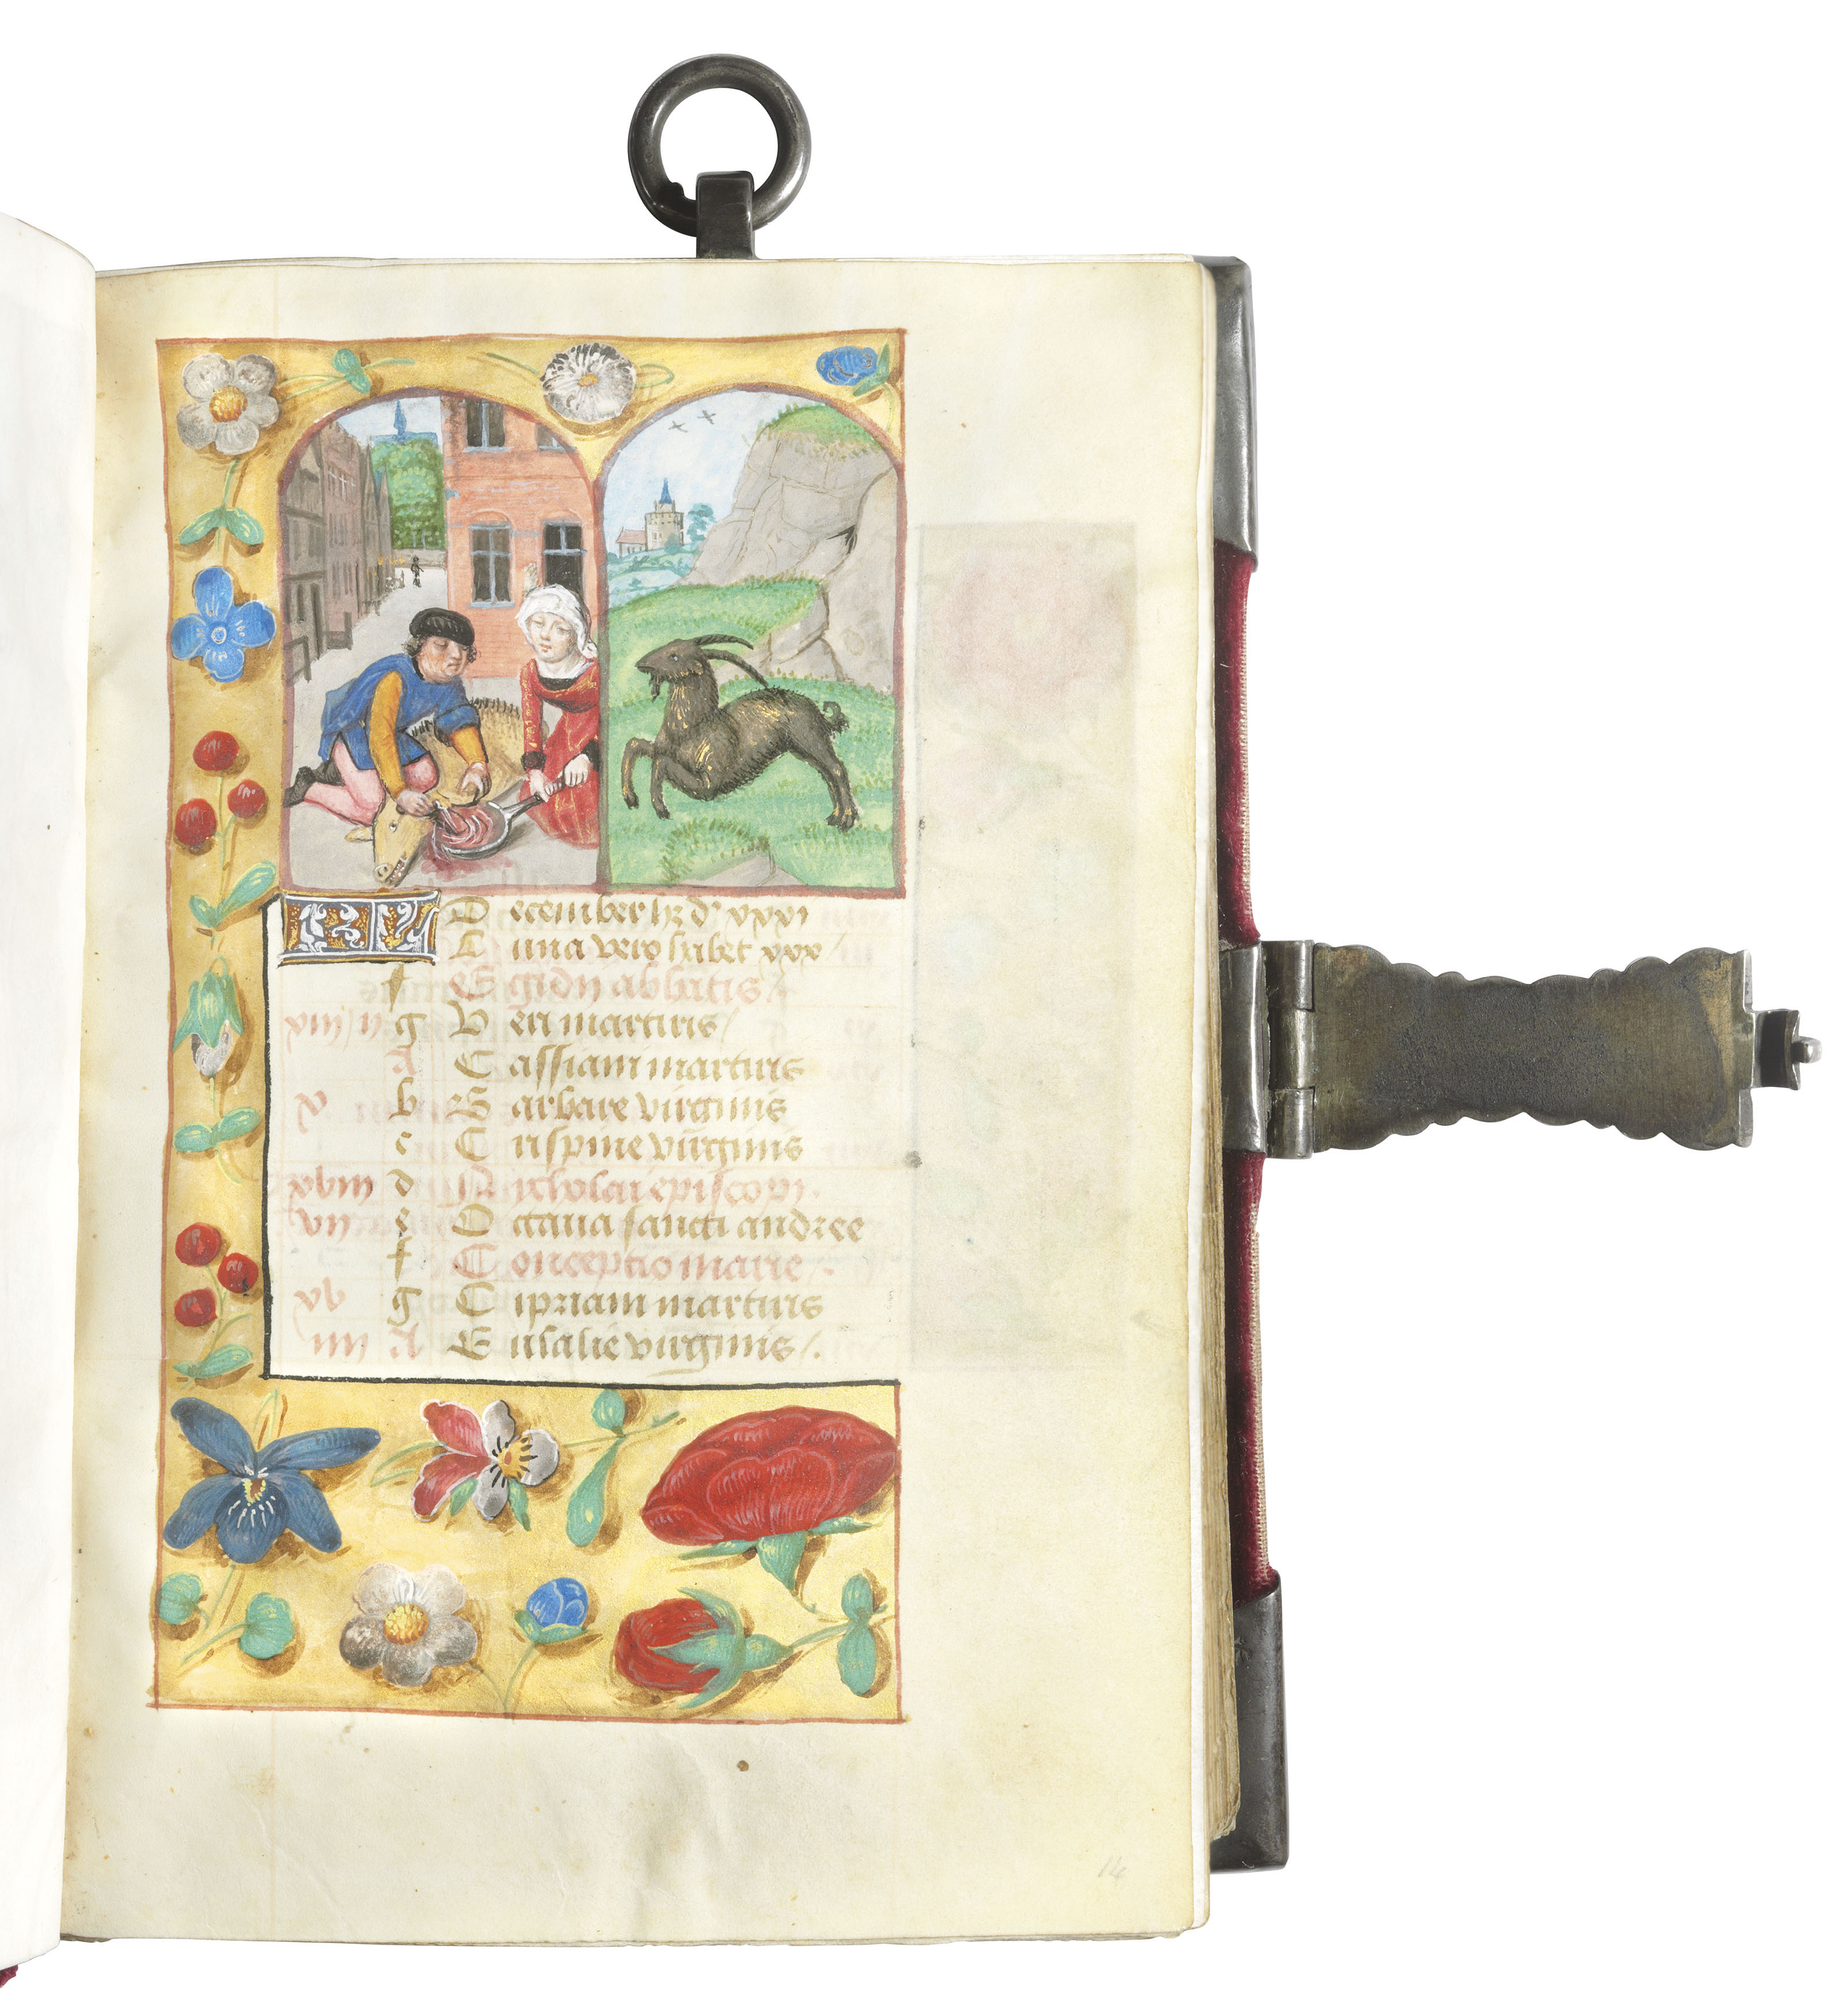 KL December hꝫ d' xxxi
Luna vero habet xxx
f Egidii abbatis
xiii ii g Ben martiris
A Cassiani martiris
x b Barbare virginis
c Crispine virginis
xviii d Nicholai episcopi.
vii e Octaua sancti andree
f Conceptio marie.
xv g Cipriani martiris
iiii A Eulalie virginis.
14